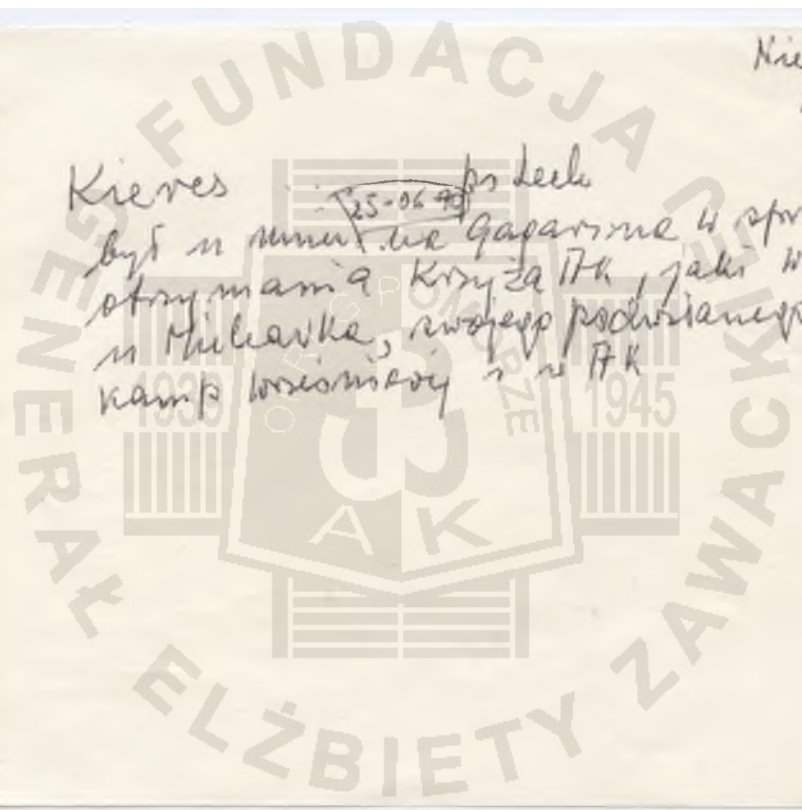 Nie
Kieres ps Lech
25-06-90
był u mnie na Gagarina w spr
otrzymania Krzyża AK, jaki w
u Michavka, swojego podwładnego
kamp wrześniowej i w AK
FUNDACJA GENERAŁ ELŻBIETY ZAWACKIEJ
ORG POMORZE
1939 1945
AK